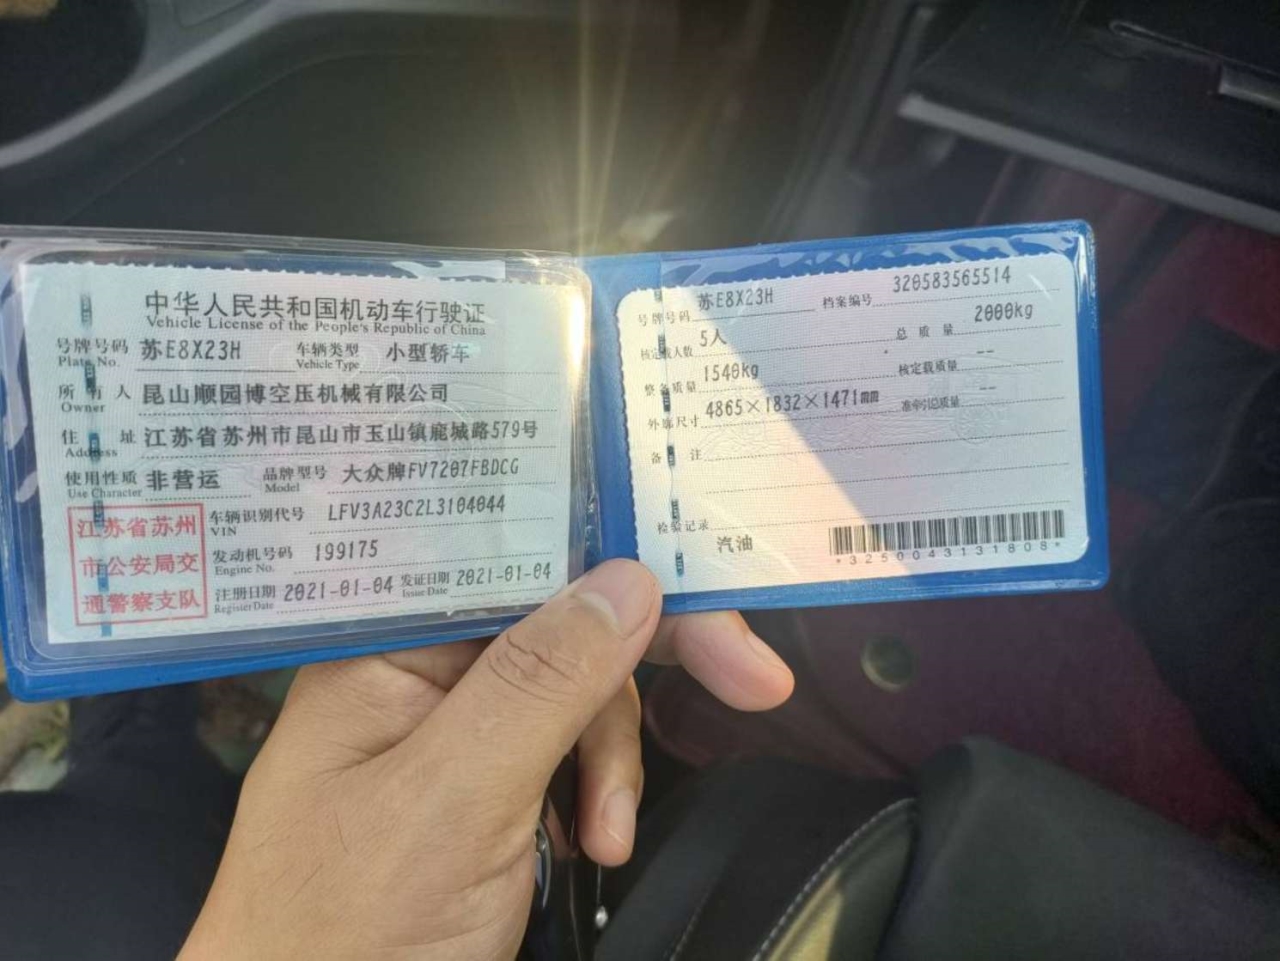 中华人民共和国机动车行驶证
Vehicle License of the People's Republic of China
号牌号码 苏E8X23H 车辆类型 小型轿车
Plate No. Vehicle Type
所有人 昆山顺园博空压机械有限公司
Owner
住址 江苏省苏州市昆山市玉山镇鹿城路579号
Address
使用性质 非营运 品牌型号 大众牌FV7207FBDCG
Use Character Model
江苏省苏州
市公安局交
通警察支队
车辆识别代号 LFV3A23C2L3104044
VIN
发动机号码 199175
Engine No.
注册日期 2021-01-04 发证日期 2021-01-04
Register Date Issue Date
号牌号码 苏E8X23H 档案编号 320583565514
核定载人数 5人 总质量 2000kg
整备质量 1540kg 核定载质量 --
外廓尺寸 4865×1832×1471mm 准牵引总质量 --
备注
检验记录
汽油
*3250043131808*